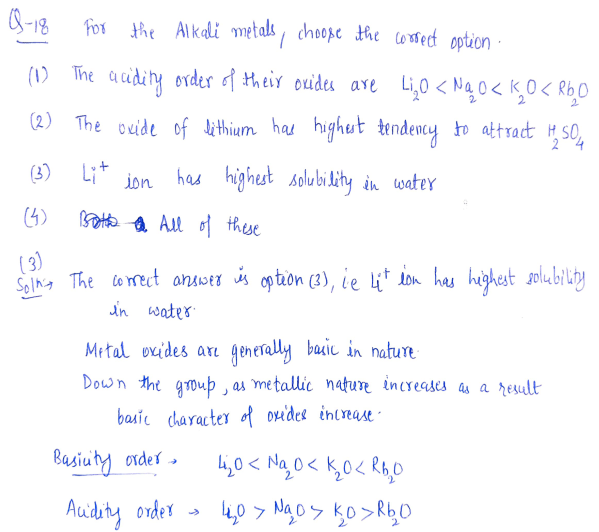 Q-18 For the Alkali metals, choose the correct option.
(1) The acidity order of their oxides are Li₂O < Na₂O < K₂O < Rb₂O
(2) The oxide of lithium has highest tendency to attract H₂SO₄
(3) Li⁺ ion has highest solubility in water
(4) All of these
(3)
Solⁿ→ The correct answer is option (3), ie Li⁺ ion has highest solubility
in water.
Metal oxides are generally basic in nature.
Down the group, as metallic nature increases as a result
basic character of oxides increase.
Basicity order → Li₂O < Na₂O < K₂O < Rb₂O
Acidity order → Li₂O > Na₂O > K₂O > Rb₂O